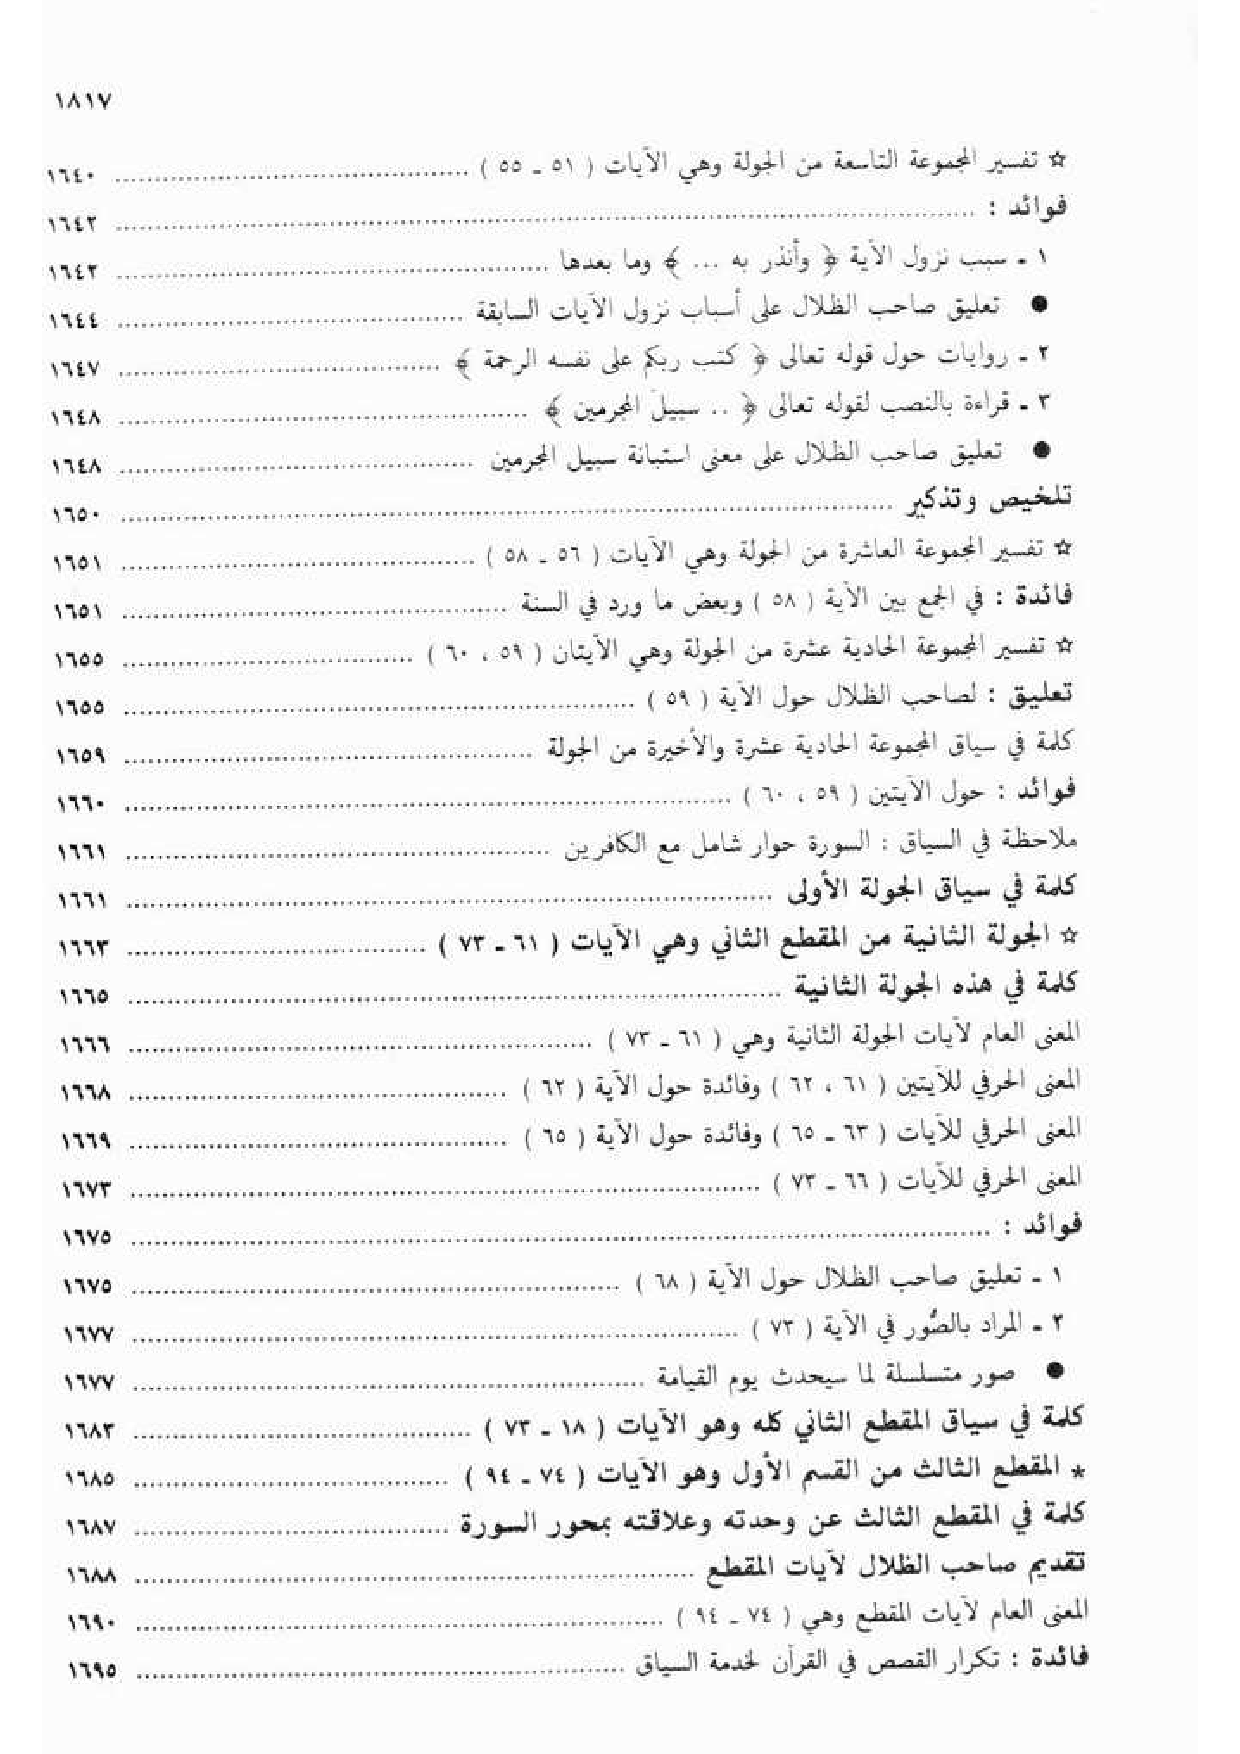 ١٨١٧
☆ تفسير المجموعة التاسعة من الجولة وهي الآيات ( ٥١ ـ ٥٥ ) ........ ١٦٤٠
فوائد : ........ ١٦٤٢
١ ـ سبب نزول الآية ﴿ وأنذر به ... ﴾ وما بعدها ........ ١٦٤٢
● تعليق صاحب الظلال على أسباب نزول الآيات السابقة ........ ١٦٤٤
٢ ـ روايات حول قوله تعالى ﴿ كتب ربكم على نفسه الرحمة ﴾ ........ ١٦٤٧
٣ ـ قراءة بالنصب لقوله تعالى ﴿ .. سبيلَ المجرمين ﴾ ........ ١٦٤٨
● تعليق صاحب الظلال على معنى استبانة سبيل المجرمين ........ ١٦٤٨
تلخيص وتذكير ........ ١٦٥٠
☆ تفسير المجموعة العاشرة من الجولة وهي الآيات ( ٥٦ ـ ٥٨ ) ........ ١٦٥١
فائدة : في الجمع بين الآية ( ٥٨ ) وبعض ما ورد في السنة ........ ١٦٥١
☆ تفسير المجموعة الحادية عشرة من الجولة وهي الآيتان ( ٥٩ ، ٦٠ ) ........ ١٦٥٥
تعليق : لصاحب الظلال حول الآية ( ٥٩ ) ........ ١٦٥٥
كلمة في سياق المجموعة الحادية عشرة والأخيرة من الجولة ........ ١٦٥٩
فوائد : حول الآيتين ( ٥٩ ، ٦٠ ) ........ ١٦٦٠
ملاحظة في السياق : السورة حوار شامل مع الكافرين ........ ١٦٦١
كلمة في سياق الجولة الأولى ........ ١٦٦١
☆ الجولة الثانية من المقطع الثاني وهي الآيات ( ٦١ ـ ٧٣ ) ........ ١٦٦٣
كلمة في هذه الجولة الثانية ........ ١٦٦٥
المعنى العام لآيات الجولة الثانية وهي ( ٦١ ـ ٧٣ ) ........ ١٦٦٦
المعنى الحرفي للآيتين ( ٦١ ، ٦٢ ) وفائدة حول الآية ( ٦٢ ) ........ ١٦٦٨
المعنى الحرفي للآيات ( ٦٣ ـ ٦٥ ) وفائدة حول الآية ( ٦٥ ) ........ ١٦٦٩
المعنى الحرفي للآيات ( ٦٦ ـ ٧٣ ) ........ ١٦٧٣
فوائد : ........ ١٦٧٥
١ ـ تعليق صاحب الظلال حول الآية ( ٦٨ ) ........ ١٦٧٥
٢ ـ المراد بالصُّور في الآية ( ٧٣ ) ........ ١٦٧٧
● صور متسلسلة لما سيحدث يوم القيامة ........ ١٦٧٧
كلمة في سياق المقطع الثاني كله وهو الآيات ( ١٨ ـ ٧٣ ) ........ ١٦٨٣
★ المقطع الثالث من القسم الأول وهو الآيات ( ٧٤ ـ ٩٤ ) ........ ١٦٨٥
كلمة في المقطع الثالث عن وحدته وعلاقته بمحور السورة ........ ١٦٨٧
تقديم صاحب الظلال لآيات المقطع ........ ١٦٨٨
المعنى العام لآيات المقطع وهي ( ٧٤ ـ ٩٤ ) ........ ١٦٩٠
فائدة : تكرار القصص في القرآن لخدمة السياق ........ ١٦٩٥